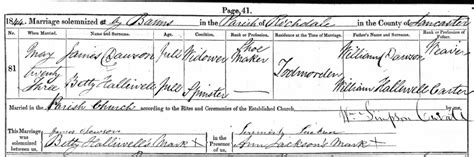 Page 41.
1844. Marriage solemnized at by Banns in the Parish of Rochdale in the County of Lancaster
No. When Married. Name and Surname. Age. Condition. Rank or Profession. Residence at the Time of Marriage. Father's Name and Surname. Rank or Profession of Father.
81 May twenty three James Dawson full Widower Shoe Maker Todmorden William Dawson Weaver
Betty Halliwell full Spinster William Halliwell Carter
Married in the Parish Church according to the Rites and Ceremonies of the Established Church, Wm. Simpson
This Marriage was solemnized between us, James Dawson in the Presence of us,
Betty Halliwell's Mark x Ann Jackson's Mark x